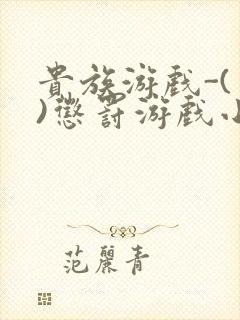 貴族游戲-(
)懲罰游戲小
范麗青